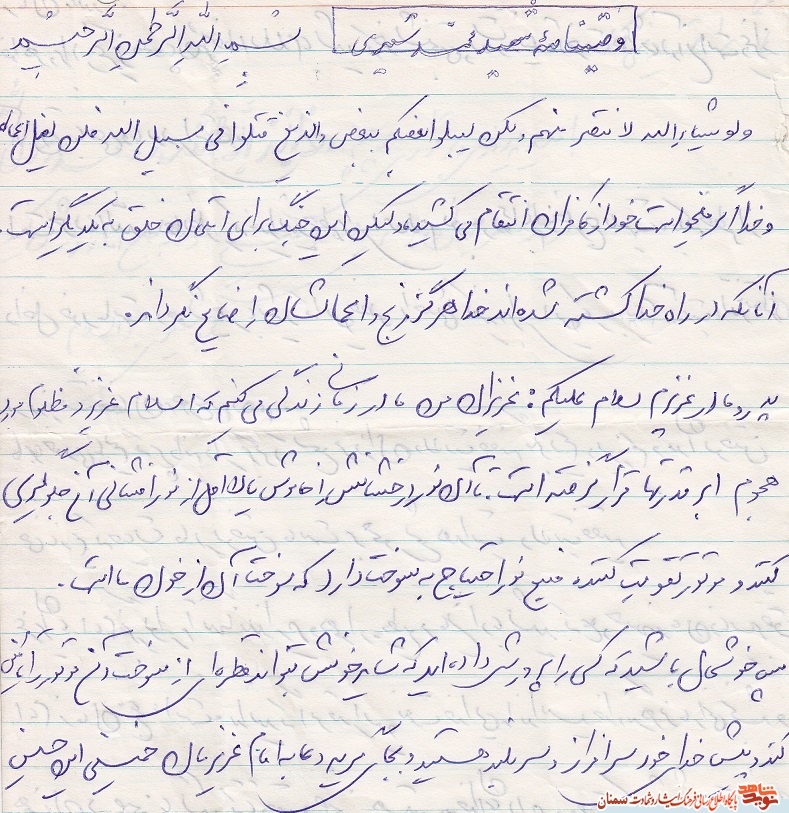 بسم الله الرحمن الرحیم وصیتنامهٔ شهید محمد شعیری
ولو شاءالله لا نتصر منهم ولکن لیبلوا بعضکم ببعض والذین قتلوا فی سبیل الله فلن یضل اعمالهم
و خدا اگر میخواست خود از کافران انتقام می‌کشید، ولیکن این جنگ برای امتحان خلق به یکدیگر است.
آنانکه در راه خدا کشته شده‌اند خدا هرگز رنج و اعمالشان را ضایع نگرداند.
پدر و مادر عزیزم سلام علیکم: عزیزان من ما در زمانی زندگی می‌کنیم که اسلام عزیز و مظلوم مورد
هجوم ابرقدرتها قرار گرفته است. تا آن نور درخشانش را خاموش یا لااقل از نورافشانی آن جلوگیری
کنند و موتور تقویت کننده منبع نور احتیاج به سوخت دارد که سوخت آن از خون ماست.
پس خوشحال باشید که کسی را پرورش داده‌اید که شاید خونش بتواند قطره‌ای از سوخت آن موتور را تأمین
کند و پیش خدای خود سرافراز و سربلند هستید و بجای گریه دعا به امام عزیزمان خمینی این چنین
نوید شاهد پایگاه اطلاع رسانی فرهنگ ایثار و شهادت سمنان